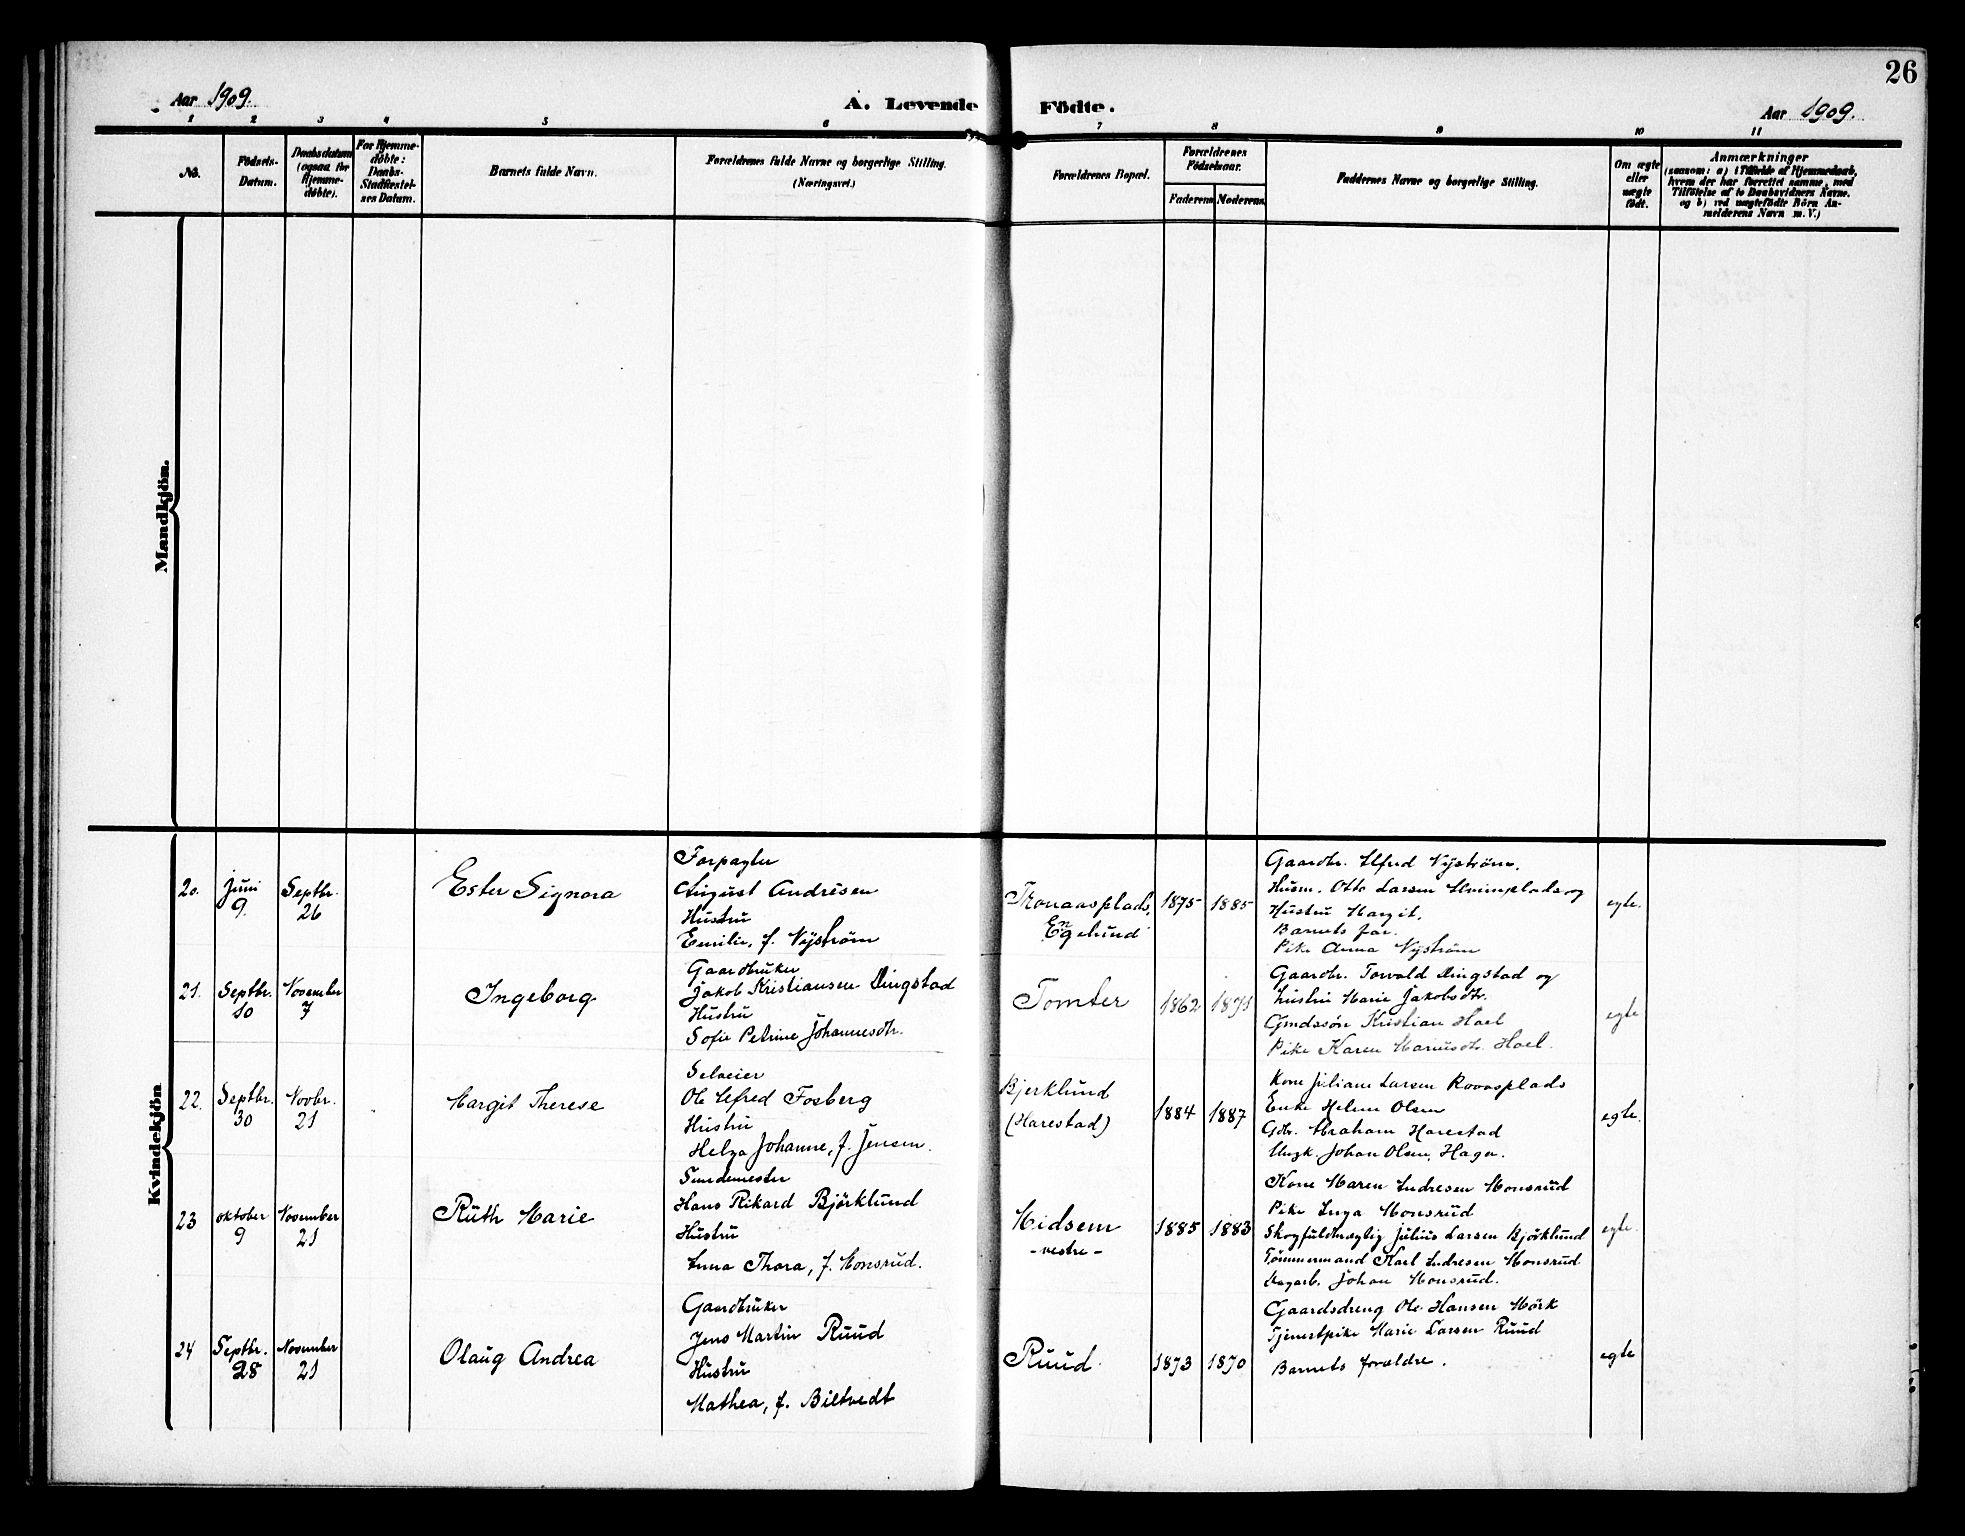 26
Aar 1909.
A. Levende Födte.
Aar 1909.
1 2 3 4 5 6 7 8 9 10 11
No.
Födsels-
Datum.
Daabsdatum
(ogsaa for
Hjemme-
döbte).
For Hjemme-
döbte:
Daabs-
Stadfæstel-
ses Datum.
Barnets fulde Navn.
Forældrenes fulde Navne og borgerlige Stilling.
(Næringsvei.)
Forældrenes Bopæl.
Forældrenes
Födselsaar.
Faderens
Moderens
Faddernes Navne og borgerlige Stilling.
Om ægte
eller
uægte
födt.
Anmærkninger
(saasom: a) i Tilfælde af Hjemmedaab,
hvem der har forrettet samme, med
Tilföielse af to Daabsvidners Navne.
og b) ved uægtefödte Börn An-
melderens Navn m. V.)
Mandkjön.
Kvindekjön
20.
Juni
9.
Septbr.
26
Ester Signora
Forpagter
August Andresen
Hustru
Emilie, f. Nyström
Tronaasplads,
Engelund
1875
1885
Gaardbr. Alfred Nyström.
Husm. Otto Larsen og
Hustru Margit.
Barnets far.
Pike Anna Nyström
egte.
21.
Septbr.
10
November
7
Ingeborg
Gaardbruker
Jakob Kristiansen Dingstad
Hustru
Sofie Petrine Johannesdtr.
Tomter
1862
1871
Gaardbr. Torvald Dingstad og
hustru Marie Jakobsdtr.
Gmdssön Kristian Hoel
Pike Karen Mariusdtr. Hoel.
egte
22.
Septbr.
30
Novbr.
21
Margit Therese
Selveier
Ole Alfred Fosberg
Hustru
Helga Johanne, f. Jensen.
Bjerklund
(Harestad)
1884
1887
Kone Juliane Larsen Roaasplads
Enke Helene Olsen
Gdbr. Abraham Harestad
Ungk. Johan Olsen, Hagen.
egte.
23
oktober
9
November
21
Ruth Marie
Hans Rikard Björklund
Hustru
Anna Thora, f. Monsrud.
Midsem
- vestre -
1885
1883
Kone Maren Andresen Monsrud
Pike Inga Monsrud
Skogfuldmægtig Julius Larsen Björklund
Tömmermand Karl Andresen Monsrud
Dagarb. Johan Monsrud.
egte.
24
Septbr.
28
November
21
Olaug Andrea
Gaardbruker
Jens Martin Ruud
Hustru
Mathea, f. Biltvedt
Ruud.
1873
1870
Gaardsdreng Ole Hansen Mörk
Tjenestpike Marie Larsen Ruud
Barnets forældre.
egte